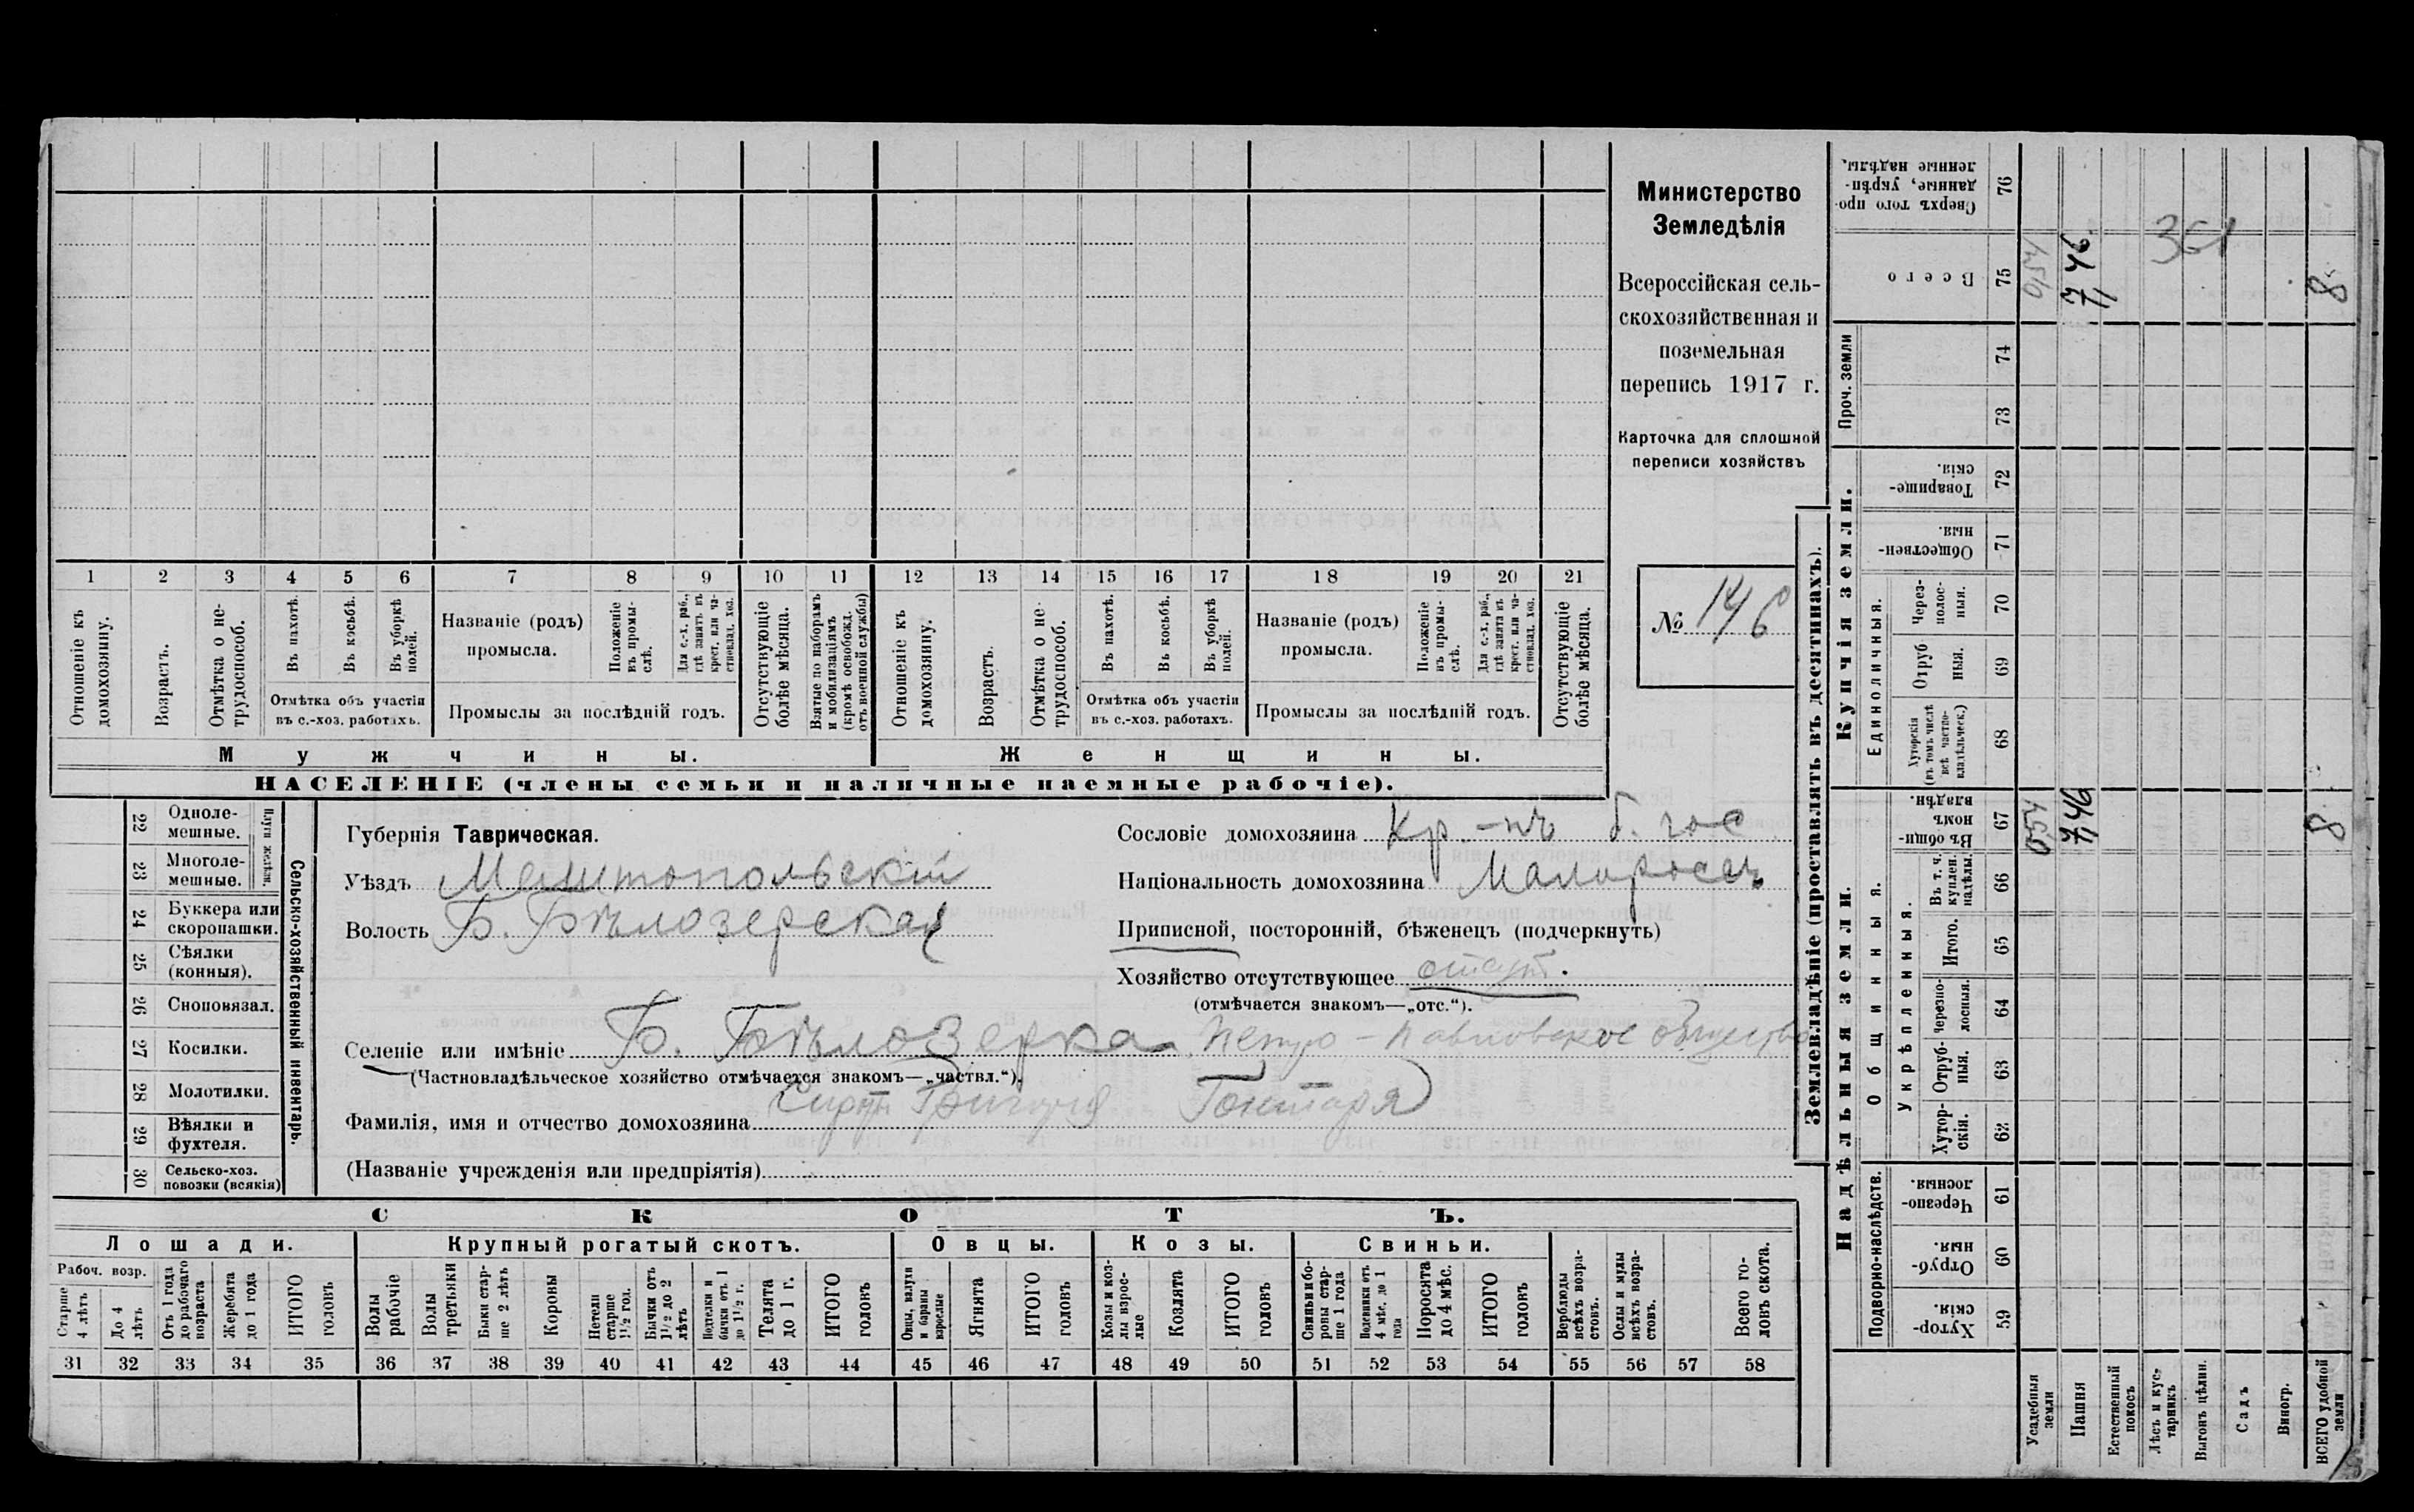 Министерство
Земледѣлія
Всероссійская сель-
скохозяйственная и
поземельная
перепись 1917 г.
Карточка для сплошной
переписи хозяйствъ
№ 146
1 2 3 4 5 6 7 8 9 10 11 12 13 14 15 16 17 18 19 20 21
Отношеніе къ домохозяину.
Возрастъ.
Отмѣтка о не-трудоспособ.
Въ пахотѣ.
Въ косьбѣ.
Въ уборкѣ полей.
Отмѣтка объ участіи
въ с.-хоз. работахъ.
Названіе (родъ)
промысла.
Положеніе въ промы-слѣ.
Для с.-х. раб., гдѣ занятъ въ крест. или ча-стновлад. хоз.
Промыслы за послѣдній годъ.
Отсутствующіе болѣе мѣсяца.
Взятые по наборамъ и мобилизаціямъ (кромѣ освобожд. отъ военной службы)
Отношеніе къ домохозяину.
Возрастъ.
Отмѣтка о не-трудоспособ.
Въ пахотѣ.
Въ косьбѣ.
Въ уборкѣ полей.
Отмѣтка объ участіи
въ с.-хоз. работахъ.
Названіе (родъ)
промысла.
Положеніе въ промы-слѣ.
Для с.-х. раб., гдѣ занята въ крест. или ча-стновлад. хоз.
Промыслы за послѣдній годъ.
Отсутствующіе болѣе мѣсяца.
Мужчины.
Женщины.
НАСЕЛЕНІЕ (члены семьи и наличные наемные рабочіе).
22 Одноле-мешные.
23 Многоле-мешные.
Плуги желѣзн.
24 Буккера или скоропашки.
25 Сѣялки (конныя).
26 Сноповязал.
27 Косилки.
28 Молотилки.
29 Вѣялки и фухтеля.
30 Сельско-хоз. повозки (всякія)
Сельско-хозяйственный инвентарь.
Губернія Таврическая.
Уѣздъ Мелитопольскій
Волость Б. Бѣлозерская
Сословіе домохозяина Кр.-нъ б. гос
Національность домохозяина Малороссъ
Приписной, посторонній, бѣженецъ (подчеркнуть)
Хозяйство отсутствующее отсут.
(отмѣчается знакомъ—„отс.“).
Селеніе или имѣніе Б. Бѣлозерка Петро-Павловское общество
(Частновладѣльческое хозяйство отмѣчается знакомъ—„частвл.“).
Фамилія, имя и отчество домохозяина Гонтаря
(Названіе учрежденія или предпріятія)
СКОТЪ.
Лошади.
Крупный рогатый скотъ.
Овцы.
Козы.
Свиньи.
Рабоч. возр.
Старше 4 лѣтъ
До 4 лѣтъ
Отъ 1 года до рабочаго возраста
Жеребята до 1 года
ИТОГО головъ
Волы рабочіе
Волы третьяки
Быки стар-ше 2 лѣтъ
Коровы
Нетели старше 1½ год.
Бычки отъ 1½ до 2 лѣтъ
Подтелки и бычки отъ 1 до 1½ г.
Телята до 1 г.
ИТОГО головъ
Овцы, валухи и бараны взрослые
Ягнята
ИТОГО головъ
Козы и коз-лы взрос-лые
Козлята
ИТОГО головъ
Свиньи и бо-ровы стар-ше 1 года
Подсвинки отъ 4 мѣс. до 1 года
Поросята до 4 мѣс.
ИТОГО головъ
Верблюды всѣхъ возра-стовъ.
Ослы и мулы всѣхъ возра-стовъ.
Всего го-ловъ скота.
31 32 33 34 35 36 37 38 39 40 41 42 43 44 45 46 47 48 49 50 51 52 53 54 55 56 57 58
Землевладѣніе (проставлять въ десятинахъ).
Сверхъ того про-данные, укрѣп-ленные надѣлы. 76
Всего 75 0,54 7,46 8
361
Проч. земли 74 73
Купчія земли.
Товарище-скія. 72
Обществен-ныя. 71
Единоличныя.
Через-полос-ныя. 70
Отруб-ныя. 69
Хуторскія (въ томъ числѣ всѣ частно-владѣльческ.) 68
Надѣльныя земли.
Общинныя.
Въ общин-номъ владѣн. 67 0,54 7,46 8
Укрѣпленныя.
Въ т. ч. куплен. надѣлы. 66
Итого. 65
Черезпо-лосныя. 64
Отруб-ныя. 63
Хутор-скія. 62
Подворно-наслѣдств.
Черезпо-лосныя. 61
Отруб-ныя. 60
Хутор-скія. 59
Усадебныя земли
Пашня
Естественный покосъ
Лѣсъ и кус-тарникъ
Выгонъ цѣлин.
Садъ
Виногр.
ВСЕГО удобной земли